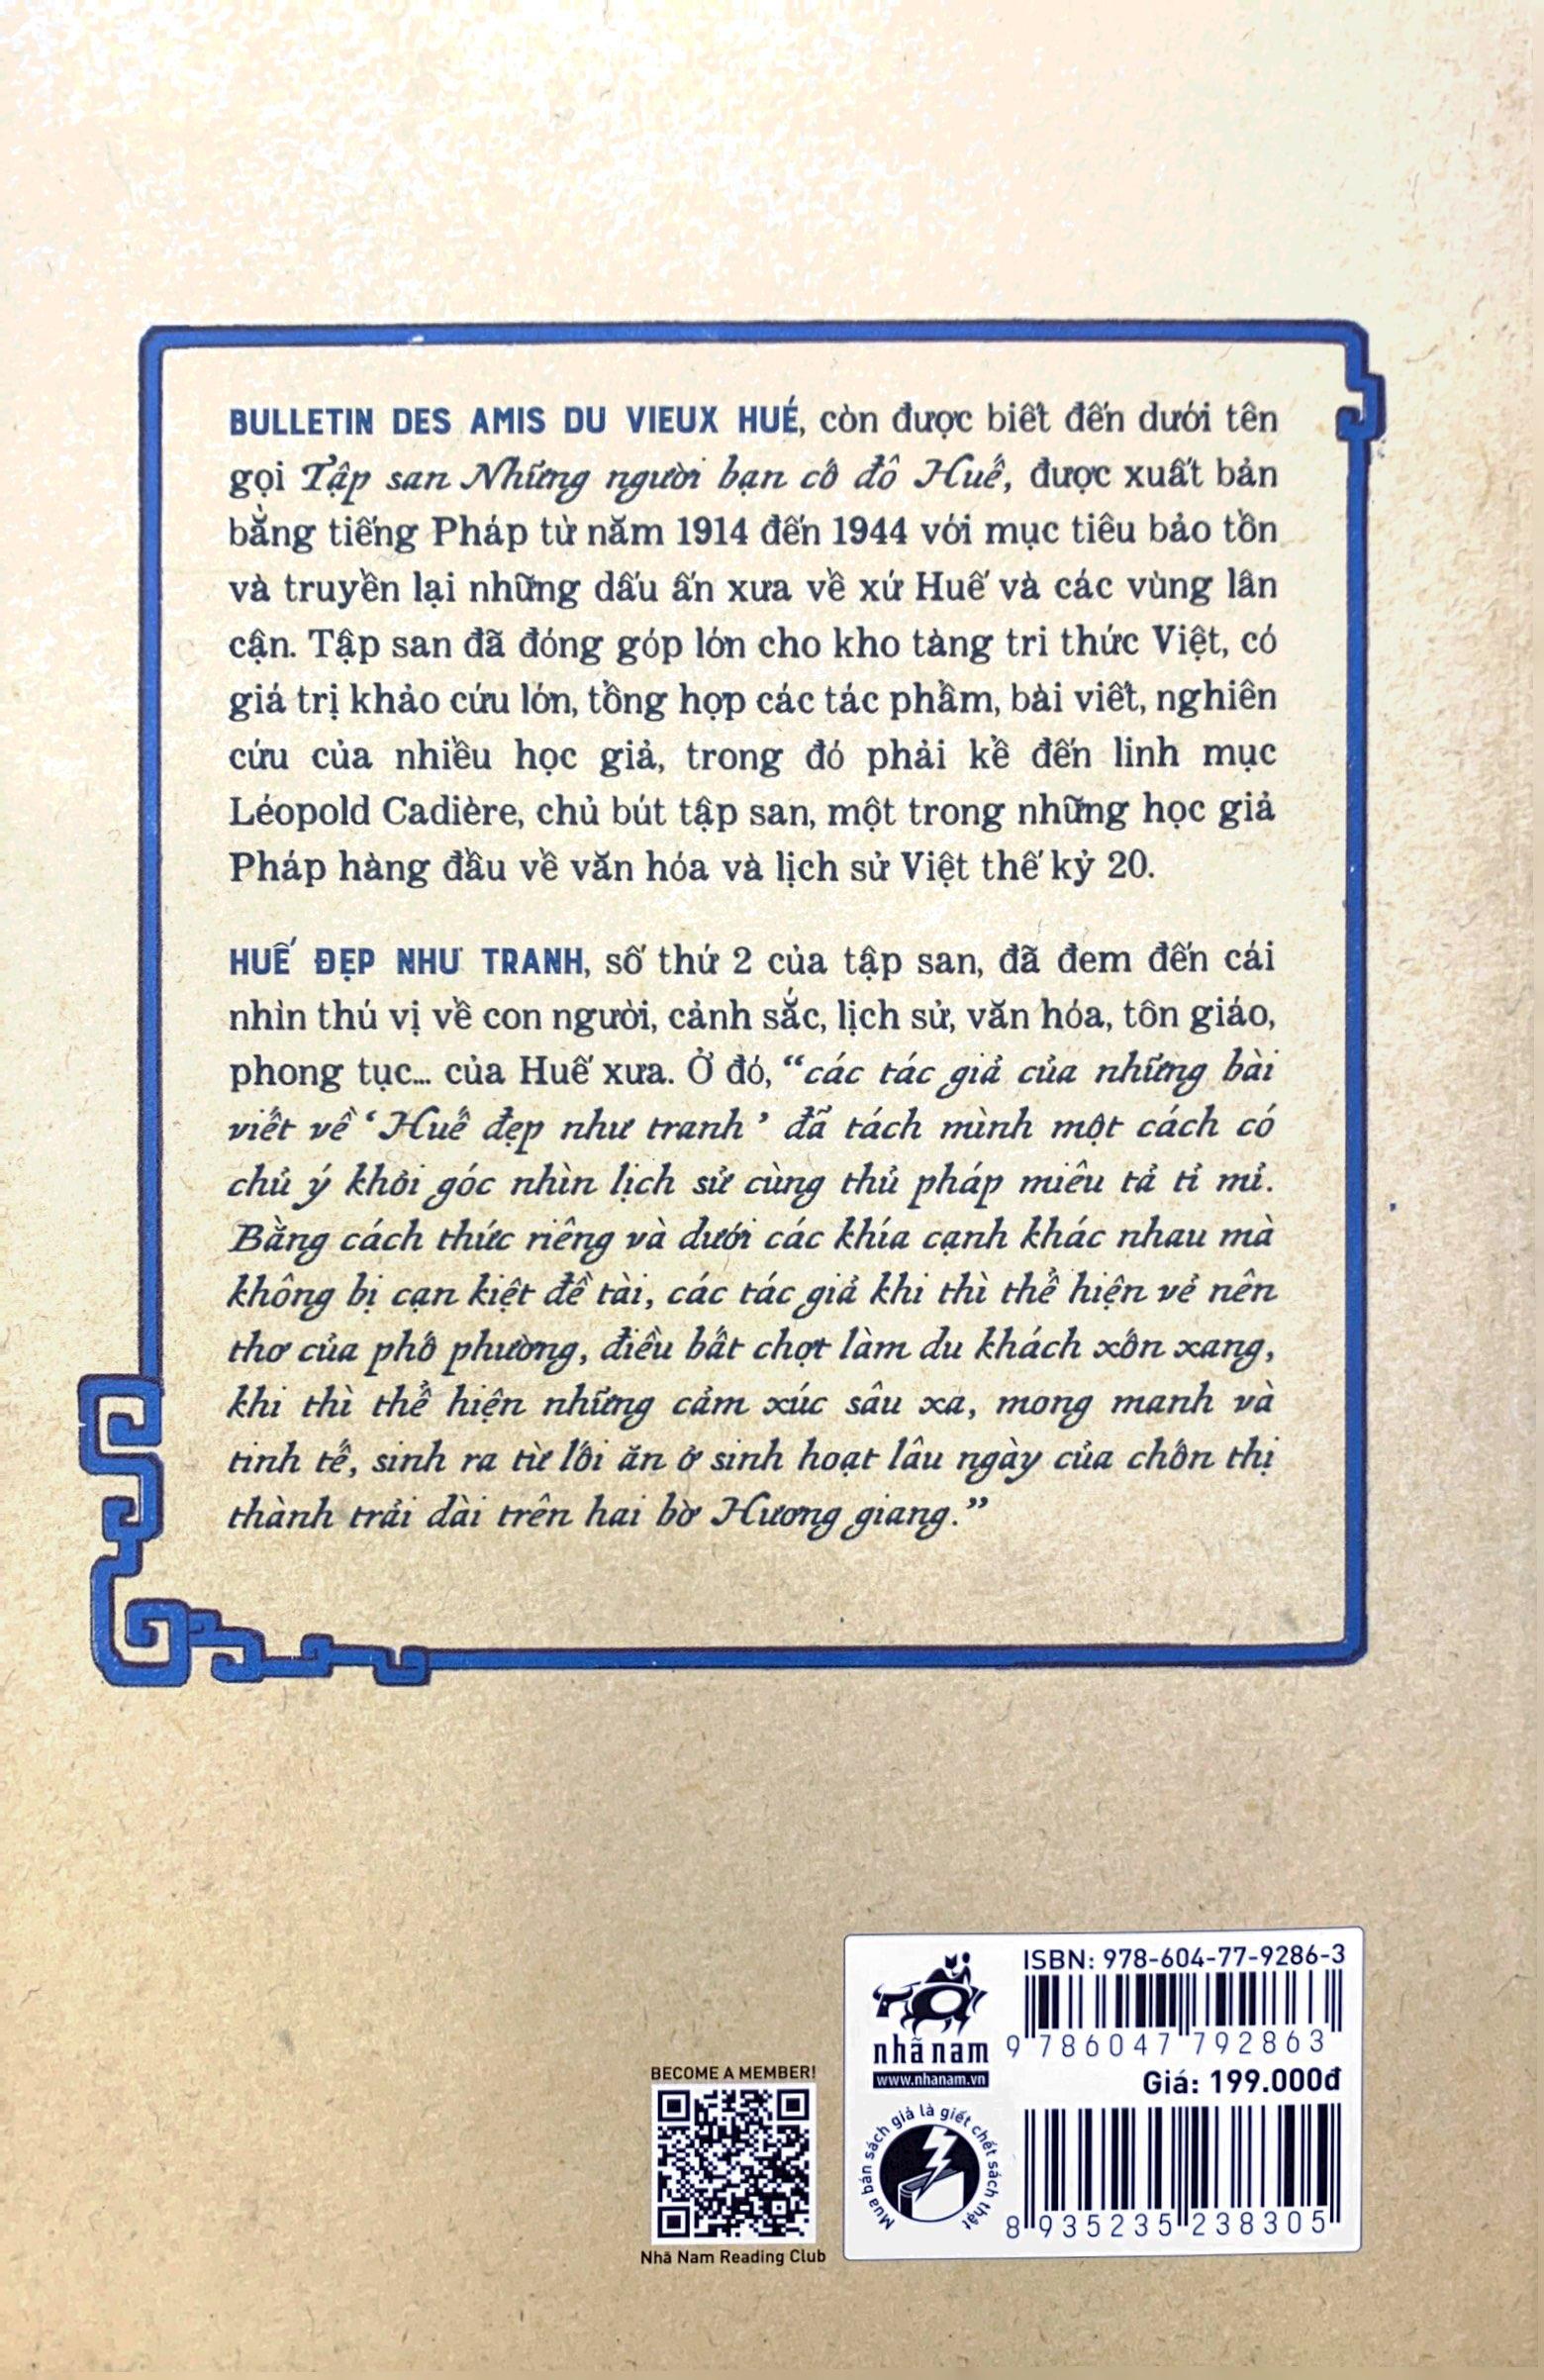 BULLETIN DES AMIS DU VIEUX HUÉ, còn được biết đến dưới tên
gọi Tập san Những người bạn cố đô Huế, được xuất bản
bằng tiếng Pháp từ năm 1914 đến 1944 với mục tiêu bảo tồn
và truyền lại những dấu ấn xưa về xứ Huế và các vùng lân
cận. Tập san đã đóng góp lớn cho kho tàng tri thức Việt, có
giá trị khảo cứu lớn, tổng hợp các tác phẩm, bài viết, nghiên
cứu của nhiều học giả, trong đó phải kể đến linh mục
Léopold Cadière, chủ bút tập san, một trong những học giả
Pháp hàng đầu về văn hóa và lịch sử Việt thế kỷ 20.
HUẾ ĐẸP NHƯ TRANH, số thứ 2 của tập san, đã đem đến cái
nhìn thú vị về con người, cảnh sắc, lịch sử, văn hóa, tôn giáo,
phong tục... của Huế xưa. Ở đó, “các tác giả của những bài
viết về ‘Huế đẹp như tranh’ đã tách mình một cách có
chủ ý khỏi góc nhìn lịch sử cùng thủ pháp miêu tả tỉ mỉ.
Bằng cách thức riêng và dưới các khía cạnh khác nhau mà
không bị cạn kiệt đề tài, các tác giả khi thì thể hiện vẻ nên
thơ của phố phường, điều bất chợt làm du khách xốn xang,
khi thì thể hiện những cảm xúc sâu xa, mong manh và
tinh tế, sinh ra từ lối ăn ở sinh hoạt lâu ngày của chốn thị
thành trải dài trên hai bờ Hương giang.”
ISBN: 978-604-77-9286-3
9 786047 792863
nhã nam
www.nhanam.vn
Giá: 199.000đ
Mua bán sách giả là giết chết sách thật
8 935235 238305
BECOME A MEMBER!
Nhã Nam Reading Club